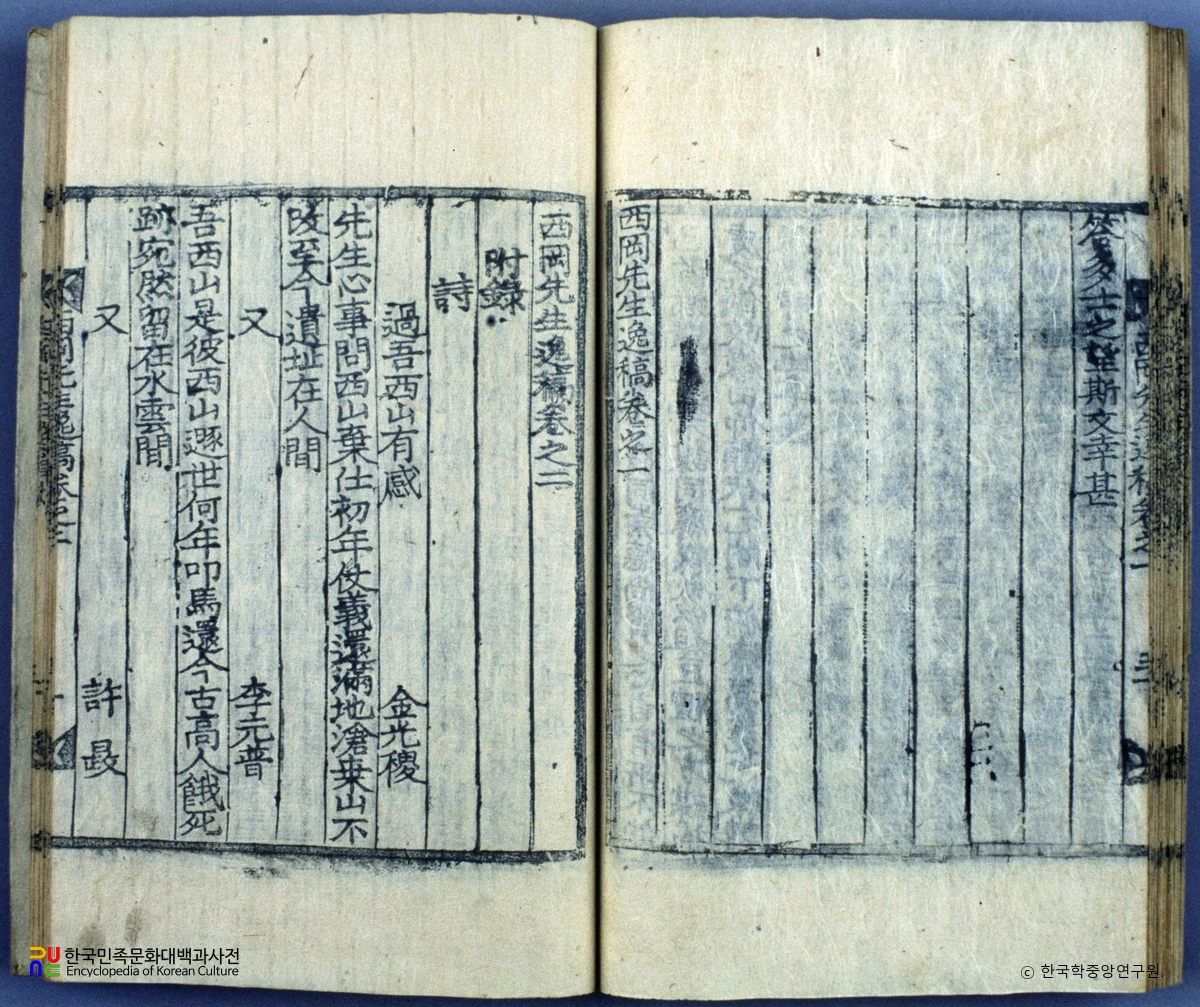 答多士之望斯文幸甚
西岡先生逸稿卷之一
西岡先生逸稿卷之二
附錄
詩
過吾西山有感 金光㮨
先生心事問西山棄仕初年仗義還滿地滄桒山不
改至今遺址在人間
又 李元普
吾西山是彼西山遯世何年叩馬還今古高人餓死
跡宛然留在水雲間
又 許
西岡先生逸稿卷之二
한국민족문화대백과사전
Encyclopedia of Korean Culture
ⓒ 한국학중앙연구원.